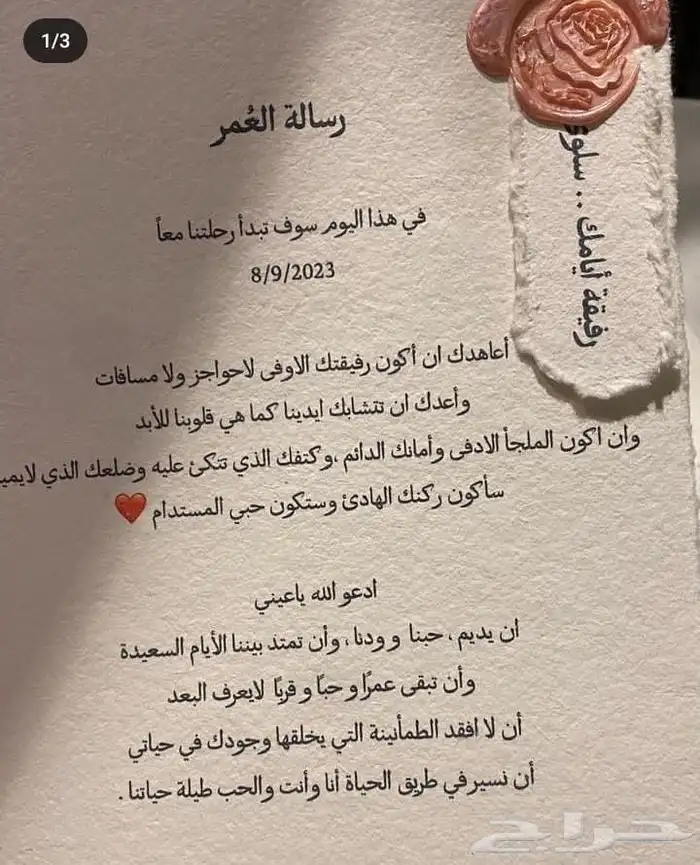 1/3
رسالة العُمر
رفيقة أيامك .. سلوى
في هذا اليوم سوف تبدأ رحلتنا معاً
8/9/2023
أعاهدك ان أكون رفيقتك الاوفى لاحواجز ولا مسافات
وأعدك ان تتشابك ايدينا كما هي قلوبنا للأبد
وان اكون الملجأ الادفى وأمانك الدائم ،وكتفك الذي تتكئ عليه وضلعك الذي
سأكون ركنك الهادئ وستكون حبي المستدام ❤️
ادعو الله ياعيني
ان يديم ، حبنا و ودنا ، وأن تمتد بيننا الأيام السعيدة
وأن تبقى عمرًا و حبًا و قربًا لايعرف البعد
أن لا افقد الطمأنينة التي يخلقها وجودك في حياتي
أن نسير في طريق الحياة أنا وأنت والحب طيلة حياتنا .
حراج